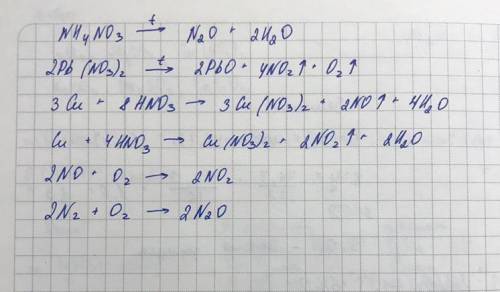 NH₄NO₃ –t→ N₂O + 2H₂O
2Pb(NO₃)₂ –t→ 2PbO + 4NO₂↑ + O₂↑
3Cu + 8HNO₃ → 3Cu(NO₃)₂ + 2NO↑ + 4H₂O
Cu + 4HNO₃ → Cu(NO₃)₂ + 2NO₂↑ + 2H₂O
2NO + O₂ → 2NO₂
2N₂ + O₂ → 2N₂O